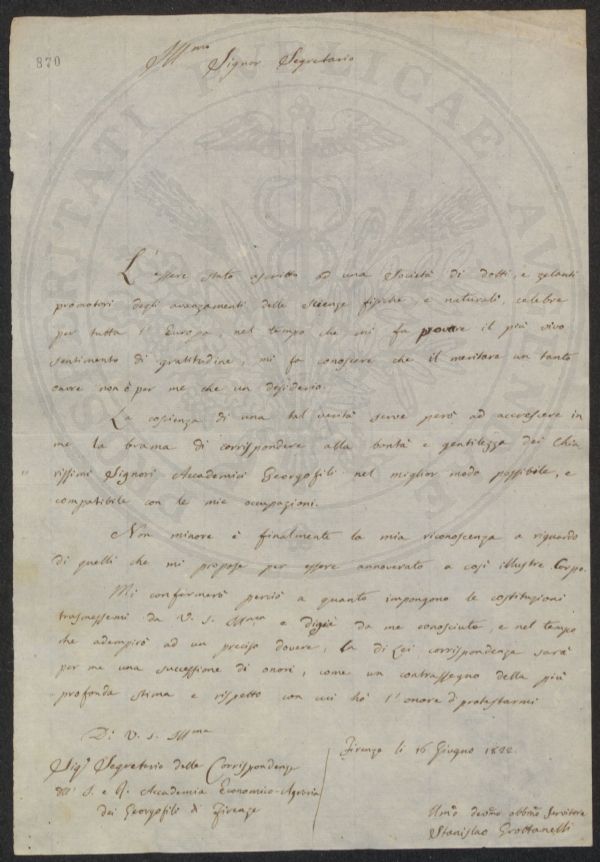 870
Ill.mo
Signor Segretario
L'essere stato ascritto ad una Società di dotti, e zelanti
promotori degli avanzamenti delle Scienze fisiche, e naturali, celebre
per tutta l'Europa, nel tempo che mi fa provare il più vivo
sentimento di gratitudine, mi fa conoscere che il meritare un tanto
onore non è per me che un desiderio.
La coscienza di una tal verità serve però ad accrescere in
me la brama di corrispondere alla bontà e gentilezza dei Chia
rissimi Signori Accademici Georgofili nel miglior modo possibile, e
compatibile con le mie occupazioni.
Non minore è finalmente la mia riconoscenza a riguardo
di quelli che mi propose per essere annoverato a così illustre Corpo.
Mi conformerò perciò a quanto impongono le costituzioni
trasmessemi da V. S. Ill.ma e digià da me conosciute, e nel tempo
che adempirò ad un preciso dovere, la di Lei corrispondenza sarà
per me una successione di onori, come un contrassegno della più
profonda stima e rispetto con cui hò l'onore di protestarmi
Di V. S. Ill.ma
Sig.r Segretario delle Corrispondenze
dell' I. e R. Accademia Economico-Agraria
dei Georgofili di Firenze
Firenze li 16 Giugno 1822.
Um.o devmo obblmo Servitore
Stanislao Grottanelli
PUBLICAE